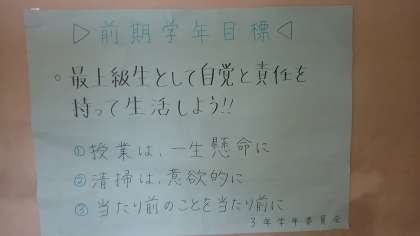 ▷前期学年目標◁
○最上級生として自覚と責任を
持って生活しよう!!
①授業は、一生懸命に
②清掃は、意欲的に
③当たり前のことを当たり前に
3年学年委員会